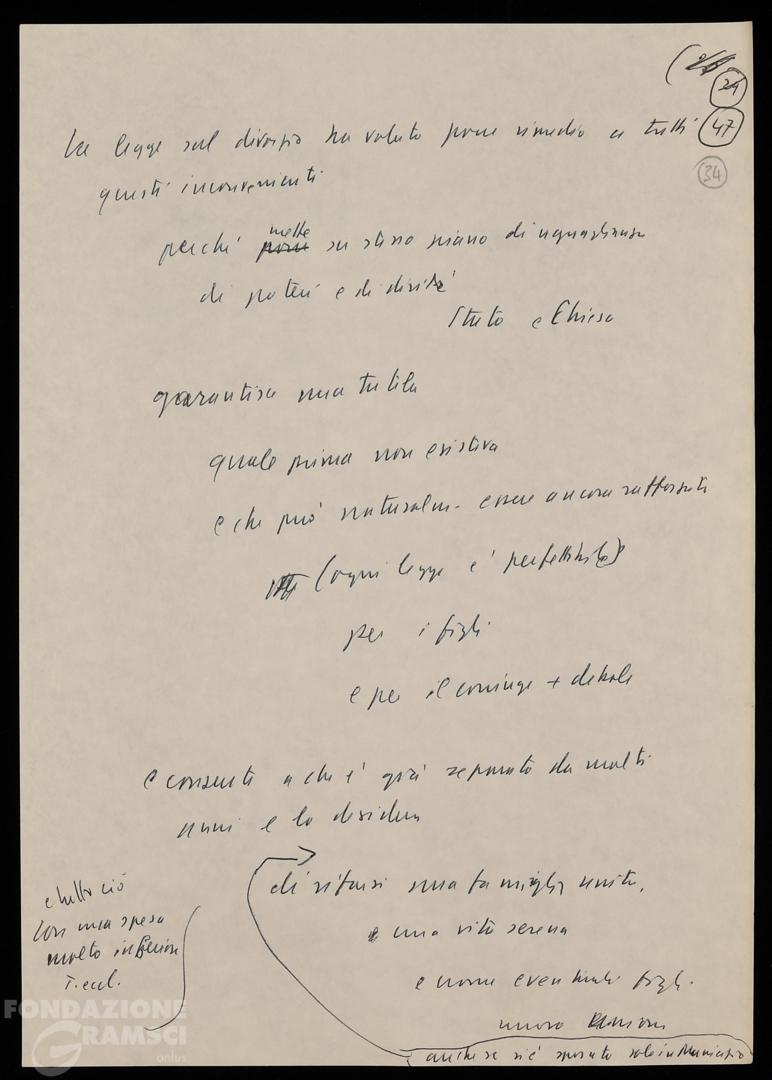 24
47
34
La legge sul divorzio ha voluto porre rimedio a tutti
questi inconvenienti
perché mette su stesso piano di uguaglianza
di poteri e di diritti
Stato e Chiesa
garantisce una tutela
quale prima non esisteva
e che può naturalm. essere ancora rafforzata
(ogni legge è perfettibile)
per i figli
e per il coniuge + debole
e consente a chi è già separato da molti
anni e lo desidera
di rifarsi una famiglia unita,
e una vita serena
e nome eventuali figli
nuova unione
anche se si è sposato solo in Municipio
e tutto ciò
con una spesa
molto inferiore
T. eccl.
FONDAZIONE
GRAMSCI
onlus